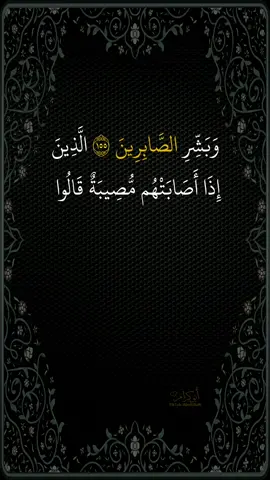 وَبَشِّرِ الصَّابِرِينَ ١٥٥ الَّذِينَ
إِذَا أَصَابَتْهُم مُّصِيبَةٌ قَالُوا